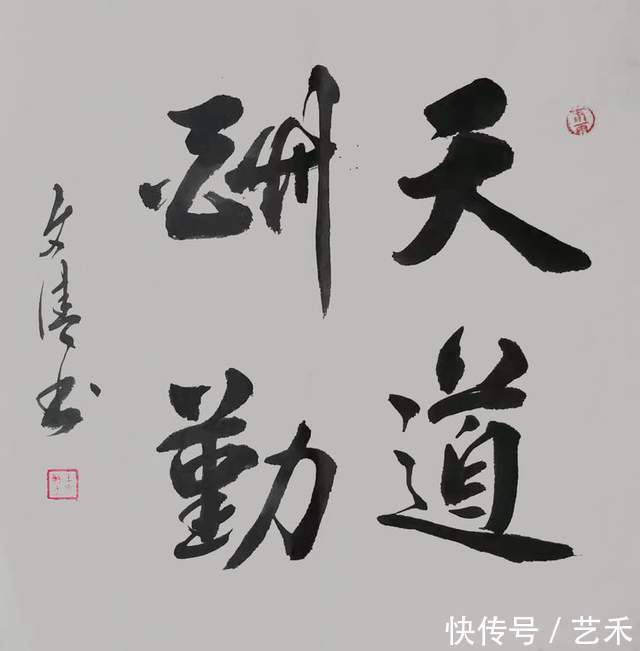 天道
酬勤
文书
快传号 / 艺禾